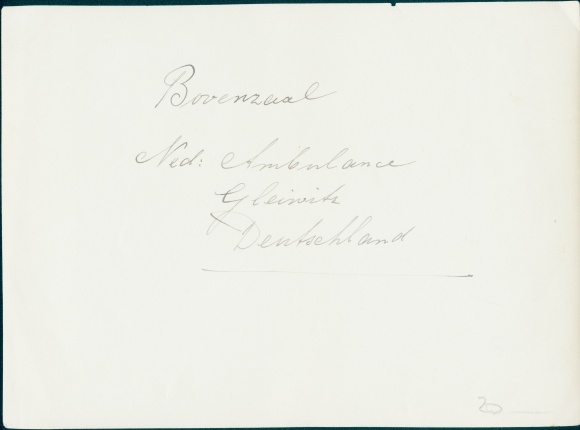 Bovenzaal
Ned: Ambulance
Gleiwitz
Deutschland
20